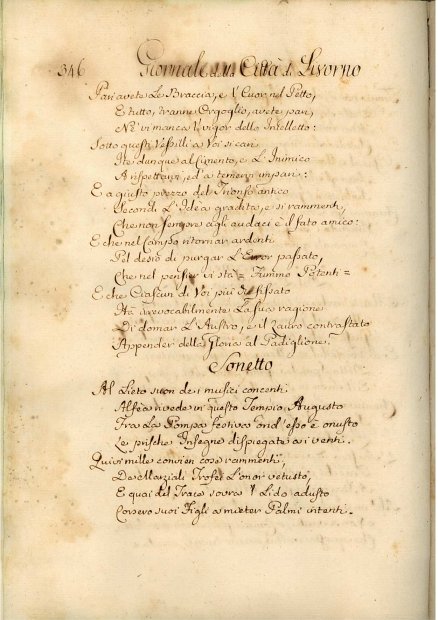 346 Giornale della Città di Livorno
Pari avete Le Braccia, e 'l Cuor nel Petto,
E tutto, tranne Orgoglio, avete pari,
Nè vi manca 'l vigor dello Intelletto:
Sotto questi Vessilli a Voi sì cari
Ite dunque al Cimento, e L'Inimico
A rispettarvi, ed a temervi impari:
E a giusto prezzo del Trionfo antico
Secondi L'Idèa gradita, e si rammenti,
Che non sempre agli audaci è il fato amico:
E che nel Campo ritornar ardenti
Pel desio di purgar L'Error passato,
Che nel pensier vi stà = Fummo Potenti =
E che Ciascun di Voi più fissato
Ha irrevocabilmente La sua ragione
Di domar L'Austro, e il Tauro contrastato
Appender della Gloria al Padiglione.
Sonetto
Al Lieto suon de i musici concenti
Alfèa rivede in questo Tempio Augusto
Fra La Pompa festiva ond'esso è onusto
Le prische Insegne dispiegate a i venti.
Quivi mille convien cose rammenti,
De Marziali Trofei L'onor vetusto,
E quai del Trace sovra 'l Lido adusto
Corsero suoi Figli a mieter Palmi intenti.